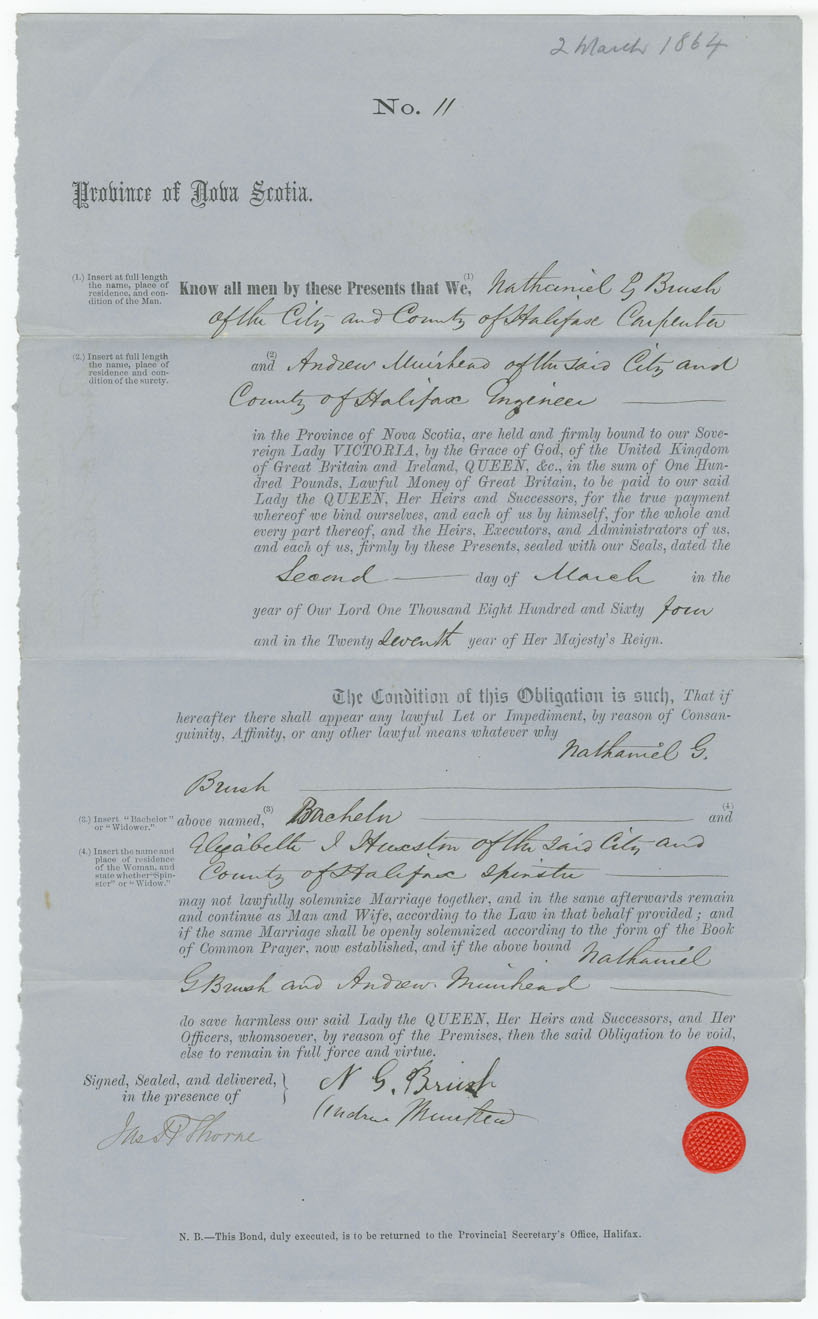 2 March 1864
No. 11
Province of Nova Scotia.
(1.) Insert at full length
the name, place of
residence, and con-
dition of the Man.
Know all men by these Presents that We, (1) Nathaniel G Brush
of the City and County of Halifax Carpenter
(2.) Insert at full length
the name, place of
residence and con-
dition of the surety.
(2) and Andrew Muirhead of the said City and
County of Halifax Engineer
in the Province of Nova Scotia, are held and firmly bound to our Sove-
reign Lady VICTORIA, by the Grace of God, of the United Kingdom
of Great Britain and Ireland, QUEEN, &c., in the sum of One Hun-
dred Pounds, Lawful Money of Great Britain, to be paid to our said
Lady the QUEEN, Her Heirs and Successors, for the true payment
whereof we bind ourselves, and each of us by himself, for the whole and
every part thereof, and the Heirs, Executors, and Administrators of us,
and each of us, firmly by these Presents, sealed with our Seals, dated the
Second day of March in the
year of Our Lord One Thousand Eight Hundred and Sixty four
and in the Twenty seventh year of Her Majesty's Reign.
The Condition of this Obligation is such, That if
hereafter there shall appear any lawful Let or Impediment, by reason of Consan-
guinity, Affinity, or any other lawful means whatever why
Nathaniel G.
Brush
(3.) Insert "Bachelor"
or "Widower."
above named, (3) Bachelor (4) and
(4.) Insert the name and
place of residence
of the Woman, and
state whether "Spin-
ster" or "Widow."
Elizabeth J of the said City and
County of Halifax Spinster
may not lawfully solemnize Marriage together, and in the same afterwards remain
and continue as Man and Wife, according to the Law in that behalf provided; and
if the same Marriage shall be openly solemnized according to the form of the Book
of Common Prayer, now established, and if the above bound Nathaniel
G Brush and Andrew Muirhead
do save harmless our said Lady the QUEEN, Her Heirs and Successors, and Her
Officers, whomsoever, by reason of the Premises, then the said Obligation to be void,
else to remain in full force and virtue.
Signed, Sealed, and delivered,
in the presence of
N G. Brush
Andrew Muirhead
Jas H Thorne
N. B.—This Bond, duly executed, is to be returned to the Provincial Secretary's Office, Halifax.